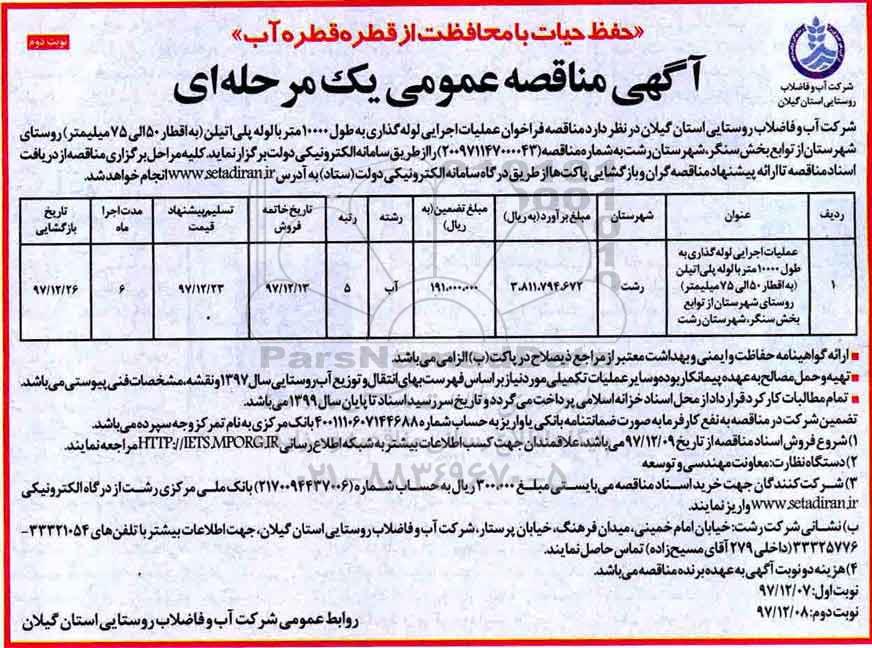 «حفظ حیات با محافظت از قطره قطره آب»
نوبت دوم
شرکت آب و فاضلاب
روستایی استان گیلان
آگهی مناقصه عمومی یک مرحله‌ای
شرکت آب و فاضلاب روستایی استان گیلان در نظر دارد مناقصه فراخوان عملیات اجرایی لوله گذاری به طول ۱۰۰۰۰ متر با لوله پلی اتیلن (به اقطار ۵۰ الی ۷۵ میلیمتر) روستای
شهرستان از توابع بخش سنگر، شهرستان رشت به شماره مناقصه (۲۰۰۹۷۱۱۴۷۰۰۰۰۴۳) را از طریق سامانه الکترونیکی دولت برگزار نماید. کلیه مراحل برگزاری مناقصه از دریافت
اسناد مناقصه تا ارائه پیشنهاد مناقصه گران و بازگشایی پاکت‌ها از طریق درگاه سامانه الکترونیکی دولت (ستاد) به آدرس www.setadiran.ir انجام خواهد شد.
ردیف عنوان شهرستان مبلغ برآورد (به ریال) مبلغ تضمین (به ریال) رشته رتبه تاریخ خاتمه فروش تسلیم پیشنهاد قیمت مدت اجرا ماه تاریخ بازگشایی
۱ عملیات اجرایی لوله گذاری به طول ۱۰۰۰۰ متر با لوله پلی اتیلن (به اقطار ۵۰ الی ۷۵ میلیمتر) روستای شهرستان از توابع بخش سنگر، شهرستان رشت رشت ۳.۸۱۱.۷۹۴.۶۷۲ ۱۹۱.۰۰۰.۰۰۰ آب ۵ ۹۷/۱۲/۱۳ ۹۷/۱۲/۲۳ ۶ ۹۷/۱۲/۲۶
ارائه گواهینامه حفاظت و ایمنی و بهداشت معتبر از مراجع ذیصلاح در پاکت (ب) الزامی می‌باشد.
تهیه و حمل مصالح به عهده پیمانکار بوده و سایر عملیات تکمیلی مورد نیاز بر اساس فهرست بهای انتقال و توزیع آب روستایی سال ۱۳۹۷ و نقشه، مشخصات فنی پیوستی می‌باشد.
تمام مطالبات کارکرد قرارداد از محل اسناد خزانه اسلامی پرداخت می گردد و تاریخ سررسید اسناد تا پایان سال ۱۳۹۹ می‌باشد.
تضمین شرکت در مناقصه به نفع کارفرما به صورت ضمانتنامه بانکی یا واریز به حساب شماره ۴۰۰۱۱۱۰۶۰۷۱۴۴۶۸۸ بانک مرکزی به نام تمرکز وجه سپرده می‌باشد.
۱) شروع فروش اسناد مناقصه از تاریخ ۹۷/۱۲/۰۹ می‌باشد. علاقمندان جهت کسب اطلاعات بیشتر به شبکه اطلاع رسانی HTTP://IETS.MPORG.IR مراجعه نمایند.
۲) دستگاه نظارت: معاونت مهندسی و توسعه
۳) شرکت کنندگان جهت خرید اسناد مناقصه می بایستی مبلغ ۳۰۰.۰۰۰ ریال به حساب شماره (۲۱۷۰۰۹۴۴۳۷۰۰۶) بانک ملی مرکزی رشت از درگاه الکترونیکی
www.setadiran.ir واریز نمایند.
ب) نشانی شرکت رشت: خیابان امام خمینی، میدان فرهنگ، خیابان پرستار، شرکت آب و فاضلاب روستایی استان گیلان، جهت اطلاعات بیشتر با تلفن های ۳۳۳۲۱۰۵۴-
۳۳۳۲۵۷۷۶ (داخلی ۲۷۹ آقای مسیح زاده) تماس حاصل نمایند.
۴) هزینه دو نوبت آگهی به عهده برنده مناقصه می‌باشد.
نوبت اول: ۹۷/۱۲/۰۷
نوبت دوم: ۹۷/۱۲/۰۸
روابط عمومی شرکت آب و فاضلاب روستایی استان گیلان
ParsNamadData
۰۲۱-۸۸۳۴۹۶۷۰-۵